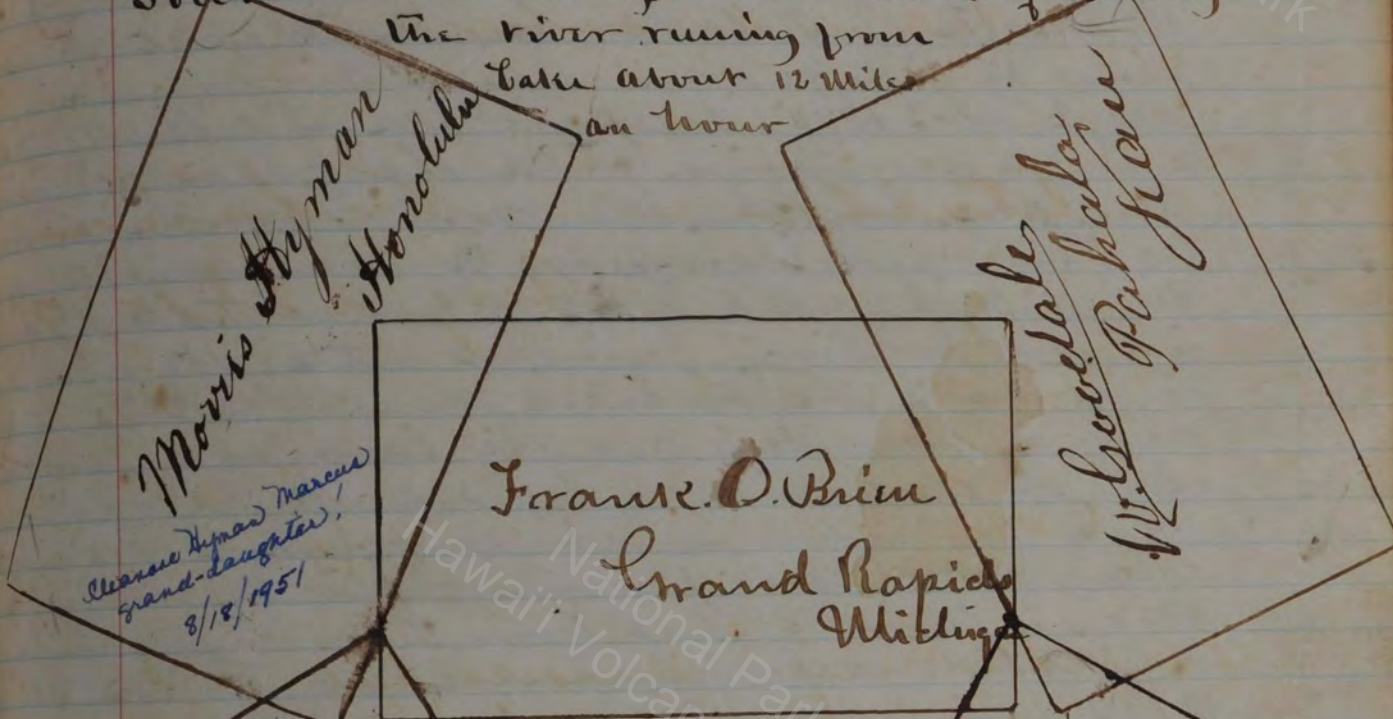 the river runing from
Lake about 12 Miles
an hour
Morris Hyman
Honolulu
Eleanore Hyman Marcus
grand-daughter!
8/18/1951
Frank. O. Brien
Grand Rapids
W. Goodale
Pahala
Kau
National Park
Hawai'i Volca